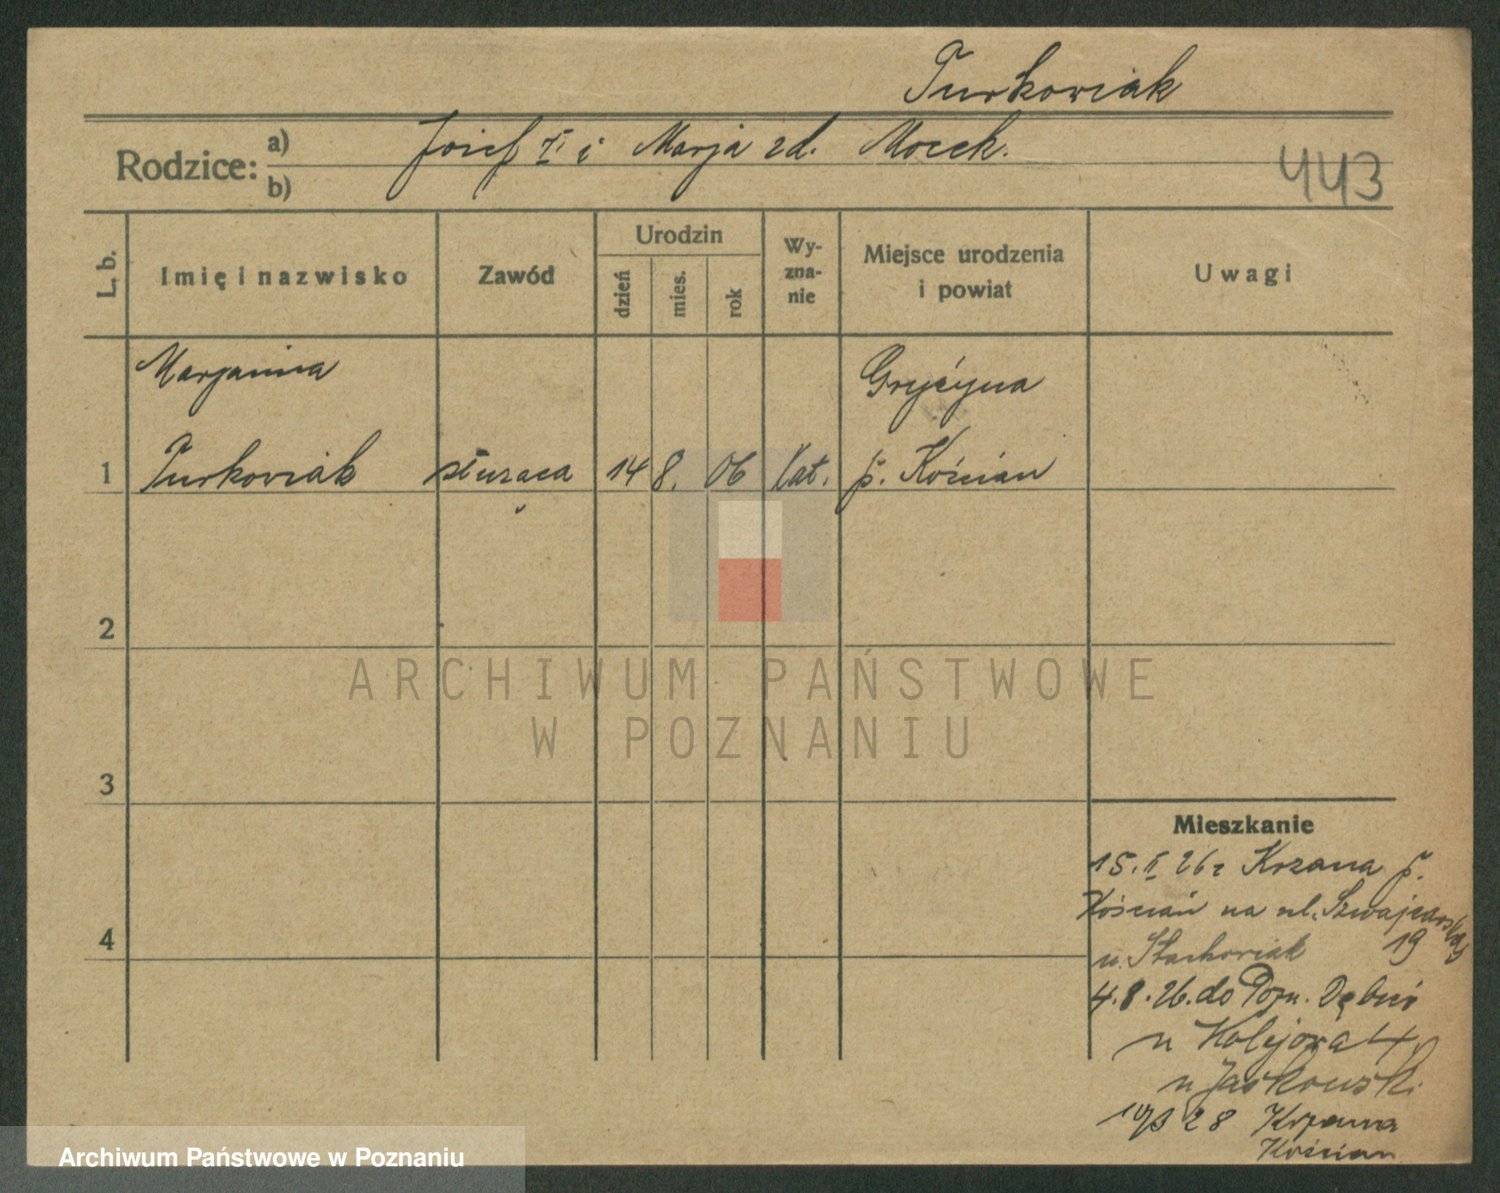 Turkowiak
Rodzice: a) Józef i Marja zd. Mocek.
b)
443
L. b.
Imię i nazwisko
Zawód
Urodzin
dzień
mies.
rok
Wy-
zna-
nie
Miejsce urodzenia
i powiat
Uwagi
Marjanna
Gryżyna
1 Turkowiak służąca 14 8. 06 kat. p. Kościan
2
3
4
ARCHIWUM PAŃSTWOWE
W POZNANIU
Mieszkanie
15. II 26 r Krzana p.
Kościań na ul. Szwajcarską
u. Stachowiak 19
4. 8. 26. do Pozn. Dębiec
u Kolejowa 4.
u Jaśkowski.
28 Krzanna
Kościan
Archiwum Państwowe w Poznaniu